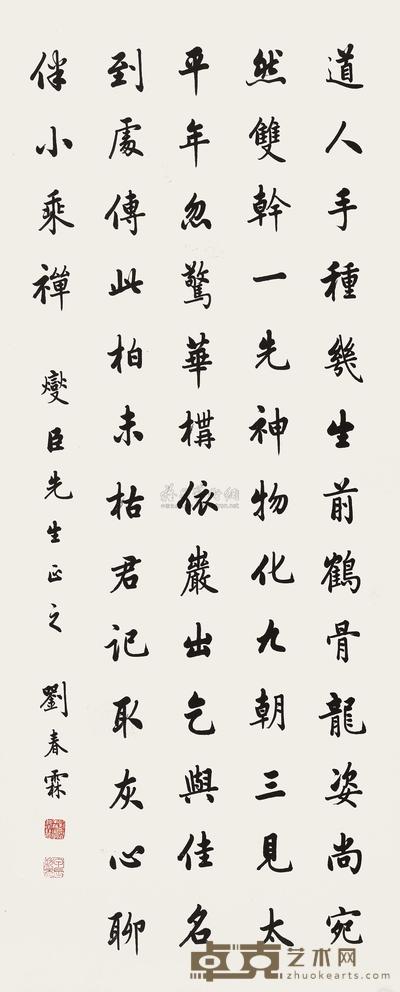 道人手種幾生前鶴骨龍姿尚宛
然雙幹一先神物化九朝三見太
平年忽驚華構依巖出乞與佳名
到處傳此柏未枯君記取灰心聊
伴小乘禪 燮臣先生正之 劉春霖
卓克艺术网
zhuokearts.com